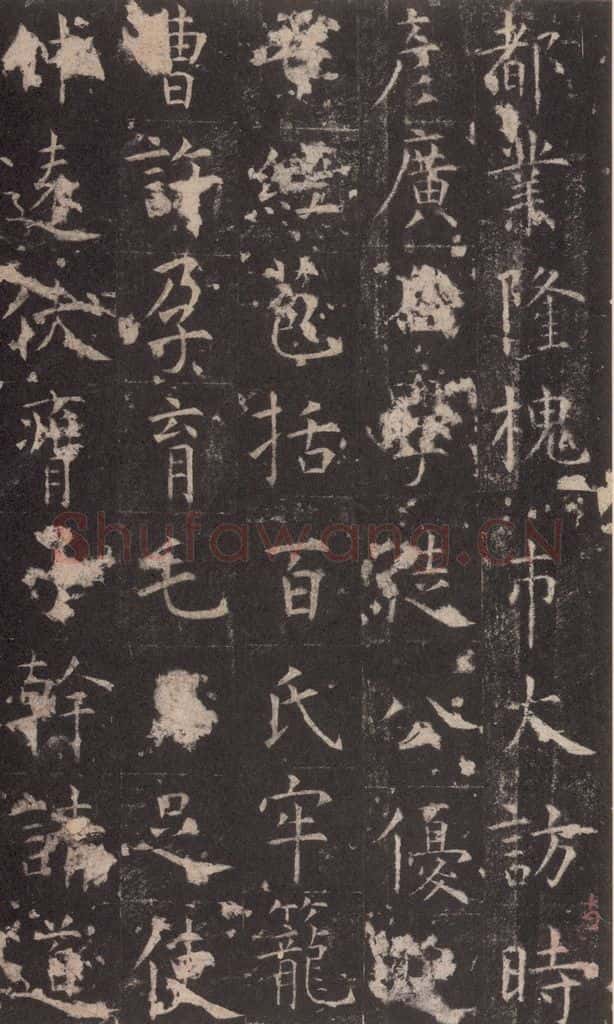 都業隆槐市大訪時
彦廣學公優
經苞括百氏牢籠
曹許孕育毛足使
仲遠伏膺子幹請道
Shufawang.CN